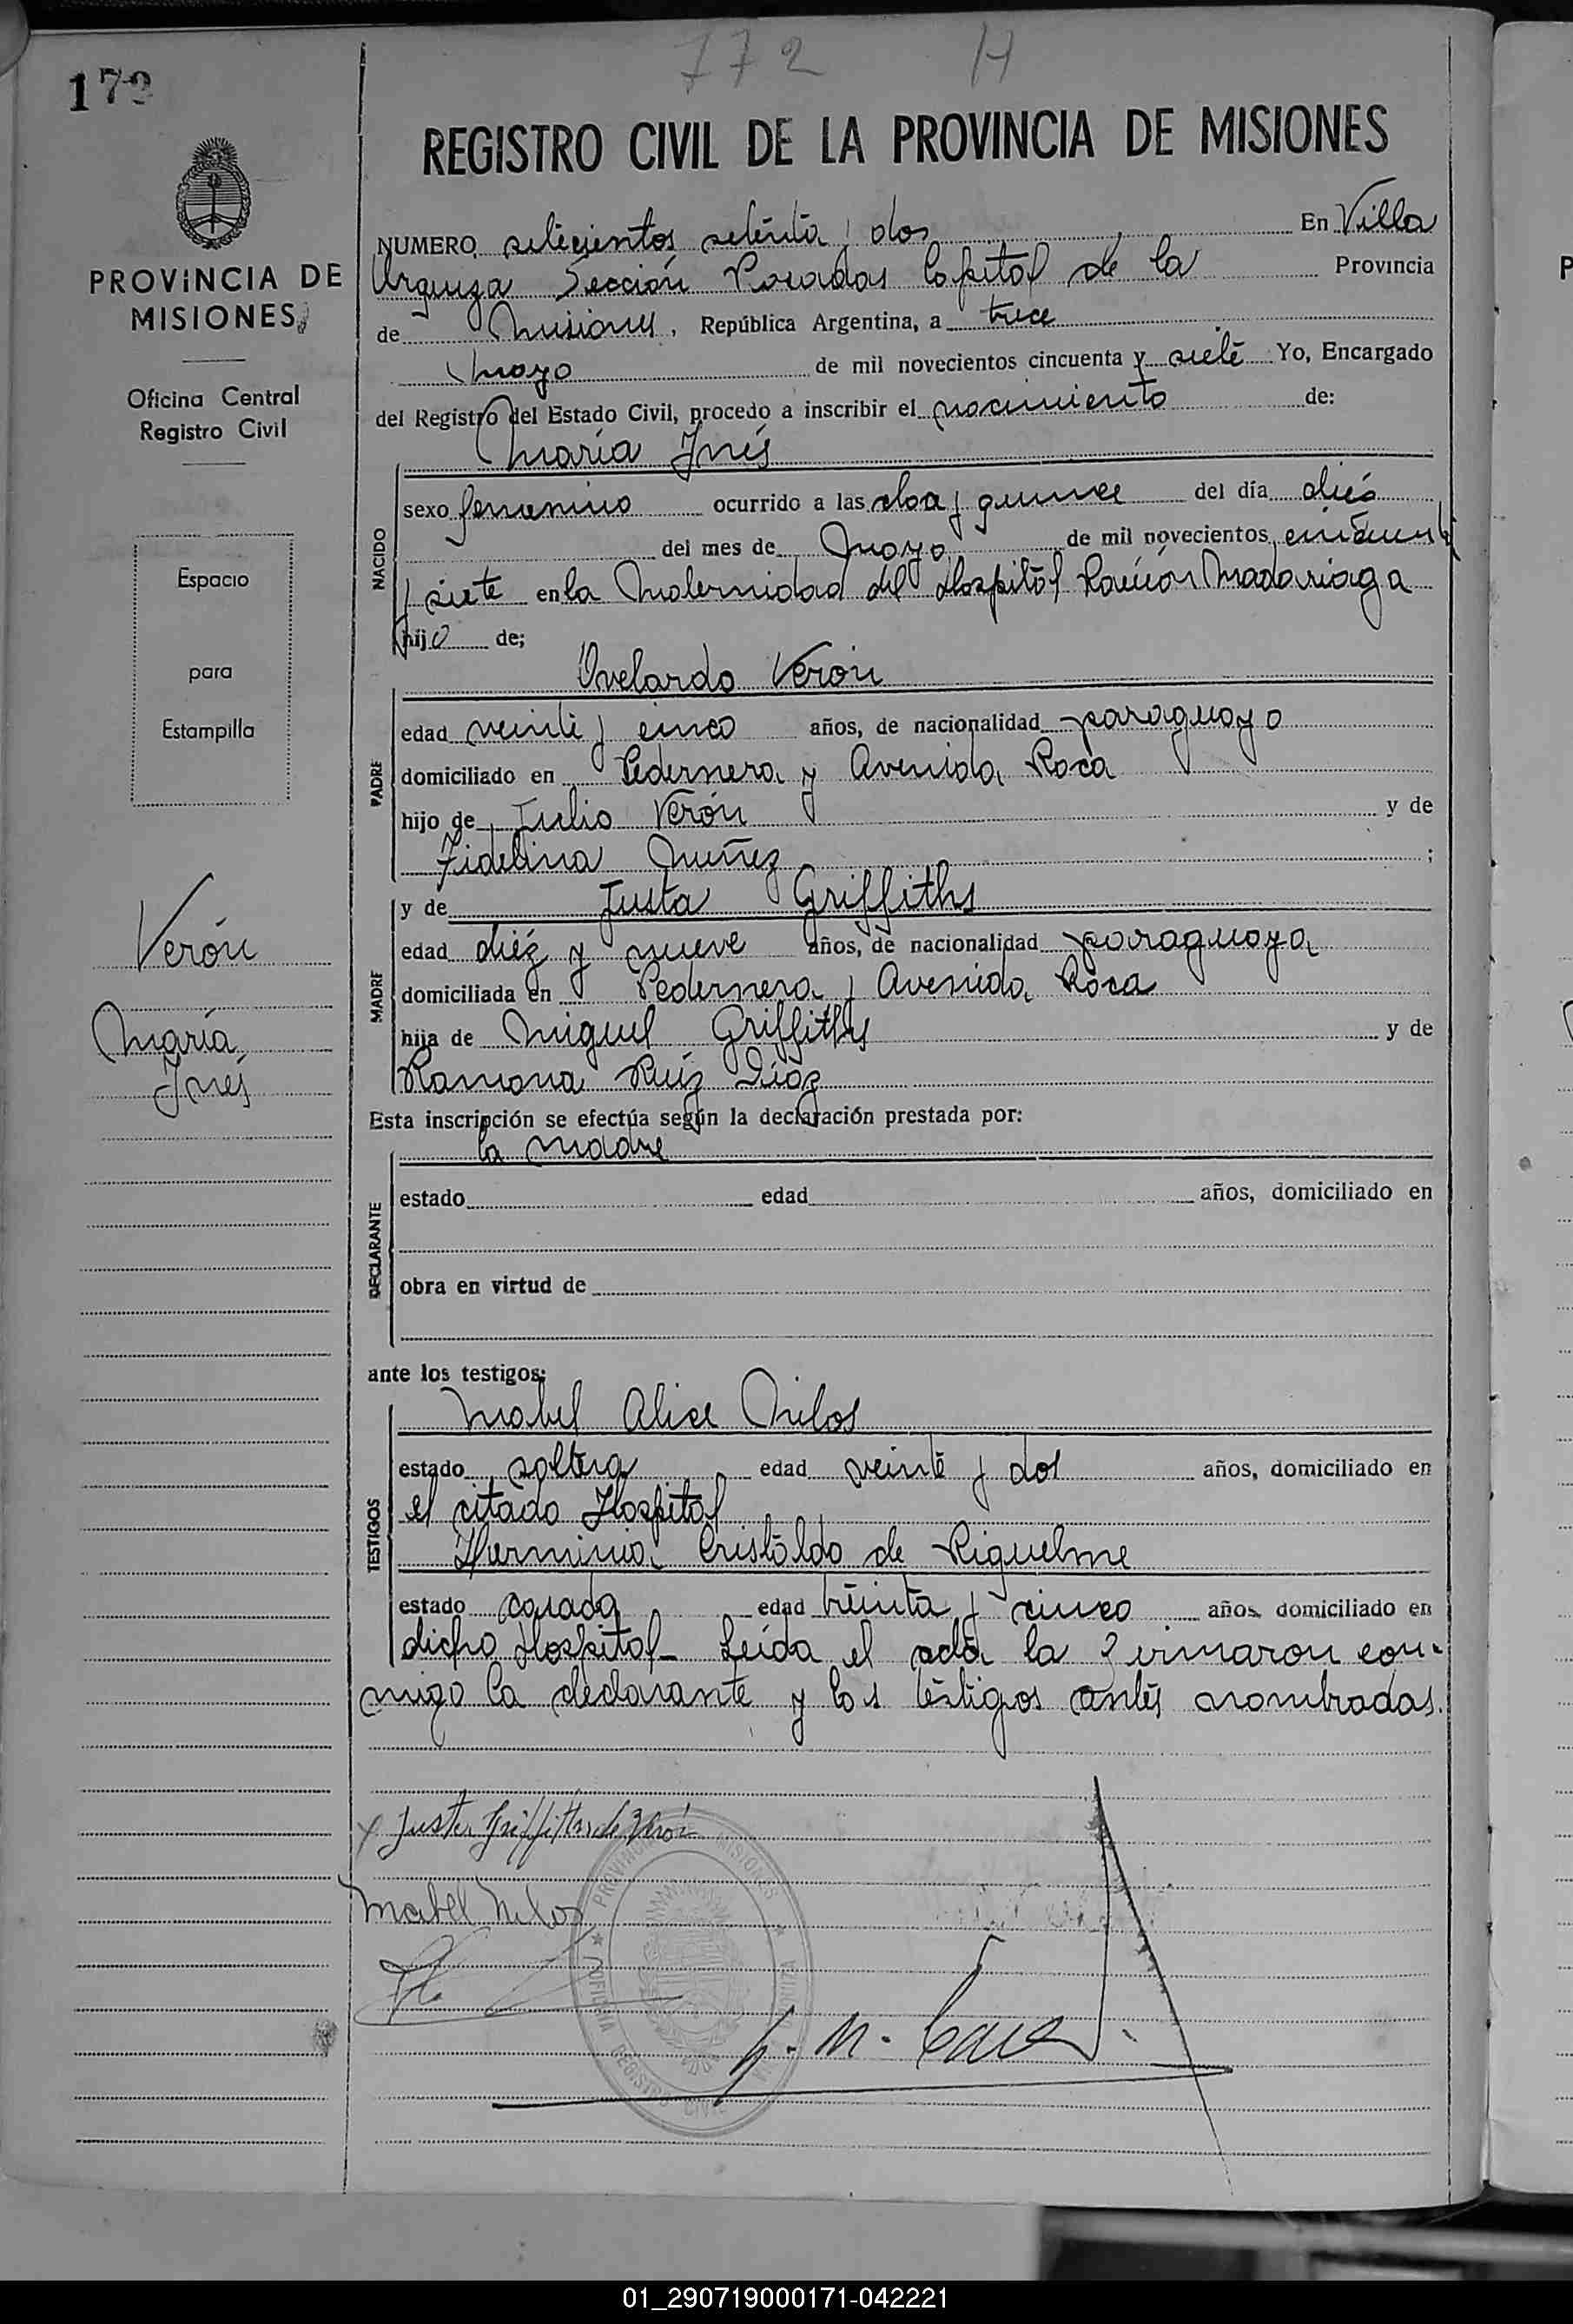 772 H
179
REGISTRO CIVIL DE LA PROVINCIA DE MISIONES
PROVINCIA DE
MISIONES
Oficina Central
Registro Civil
Espacio
para
Estampilla
Verón
María
Inés
NUMERO setecientos setenta y dos En Villa
Urquiza Sección Posadas Capital de la Provincia
de Misiones, República Argentina, a trece
Mayo de mil novecientos cincuenta y siete Yo, Encargado
del Registro del Estado Civil, procedo a inscribir el nacimiento de:
María Inés
NACIDO
sexo femenino ocurrido a las dos y quince del día diés
del mes de Mayo de mil novecientos cincuenta
y siete en la Maternidad del Hospital Ramón Madariaga
hijo de;
Ovelardo Verón
PADRE
edad veinte y cinco años, de nacionalidad paraguayo
domiciliado en Pedernera y Avenida Roca
hijo de Julio Verón y de
Fidelina Nuñez ;
y de Justa Griffiths
MADRE
edad diéz y nueve años, de nacionalidad paraguaya
domiciliada en Pedernera y Avenida Roca
hija de Miguel Griffiths y de
Ramona Ruíz Díaz
Esta inscripción se efectúa según la declaración prestada por:
la madre
DECLARANTE
estado edad años, domiciliado en
obra en virtud de
ante los testigos:
Mabel Alice Milos
TESTIGOS
estado soltera edad veinte y dos años, domiciliado en
el citado Hospital
Herminia Cristaldo de Riquelme
estado casada edad treinta y cinco años domiciliado en
dicho Hospital_ Leída el acta la firmaron con-
migo la declarante y los testigos antes nombradas.
Justa Griffiths de Verón
Mabel Milos
PROVINCIA MISIONES
OFICINA REGISTRO CIVIL
01_290719000171-042221